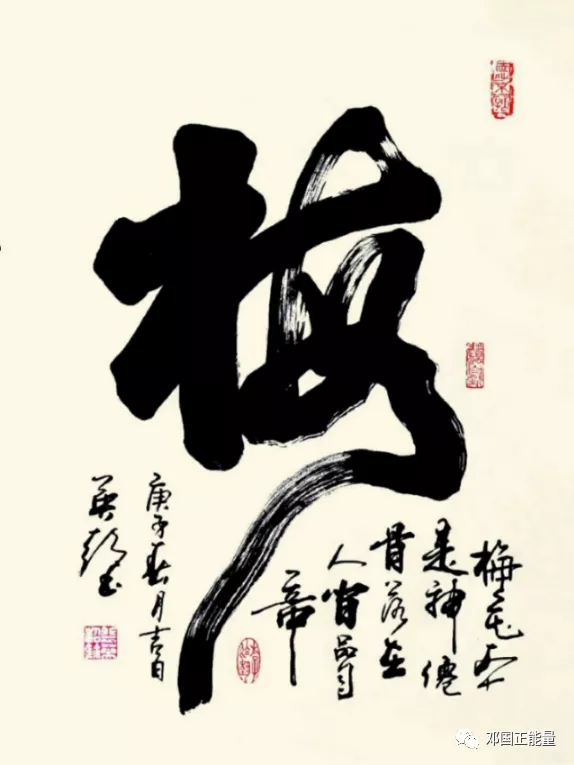 梅
梅花本
是神僊
骨落在
人间品自
奇
庚子春月吉日
书
邓国正能量